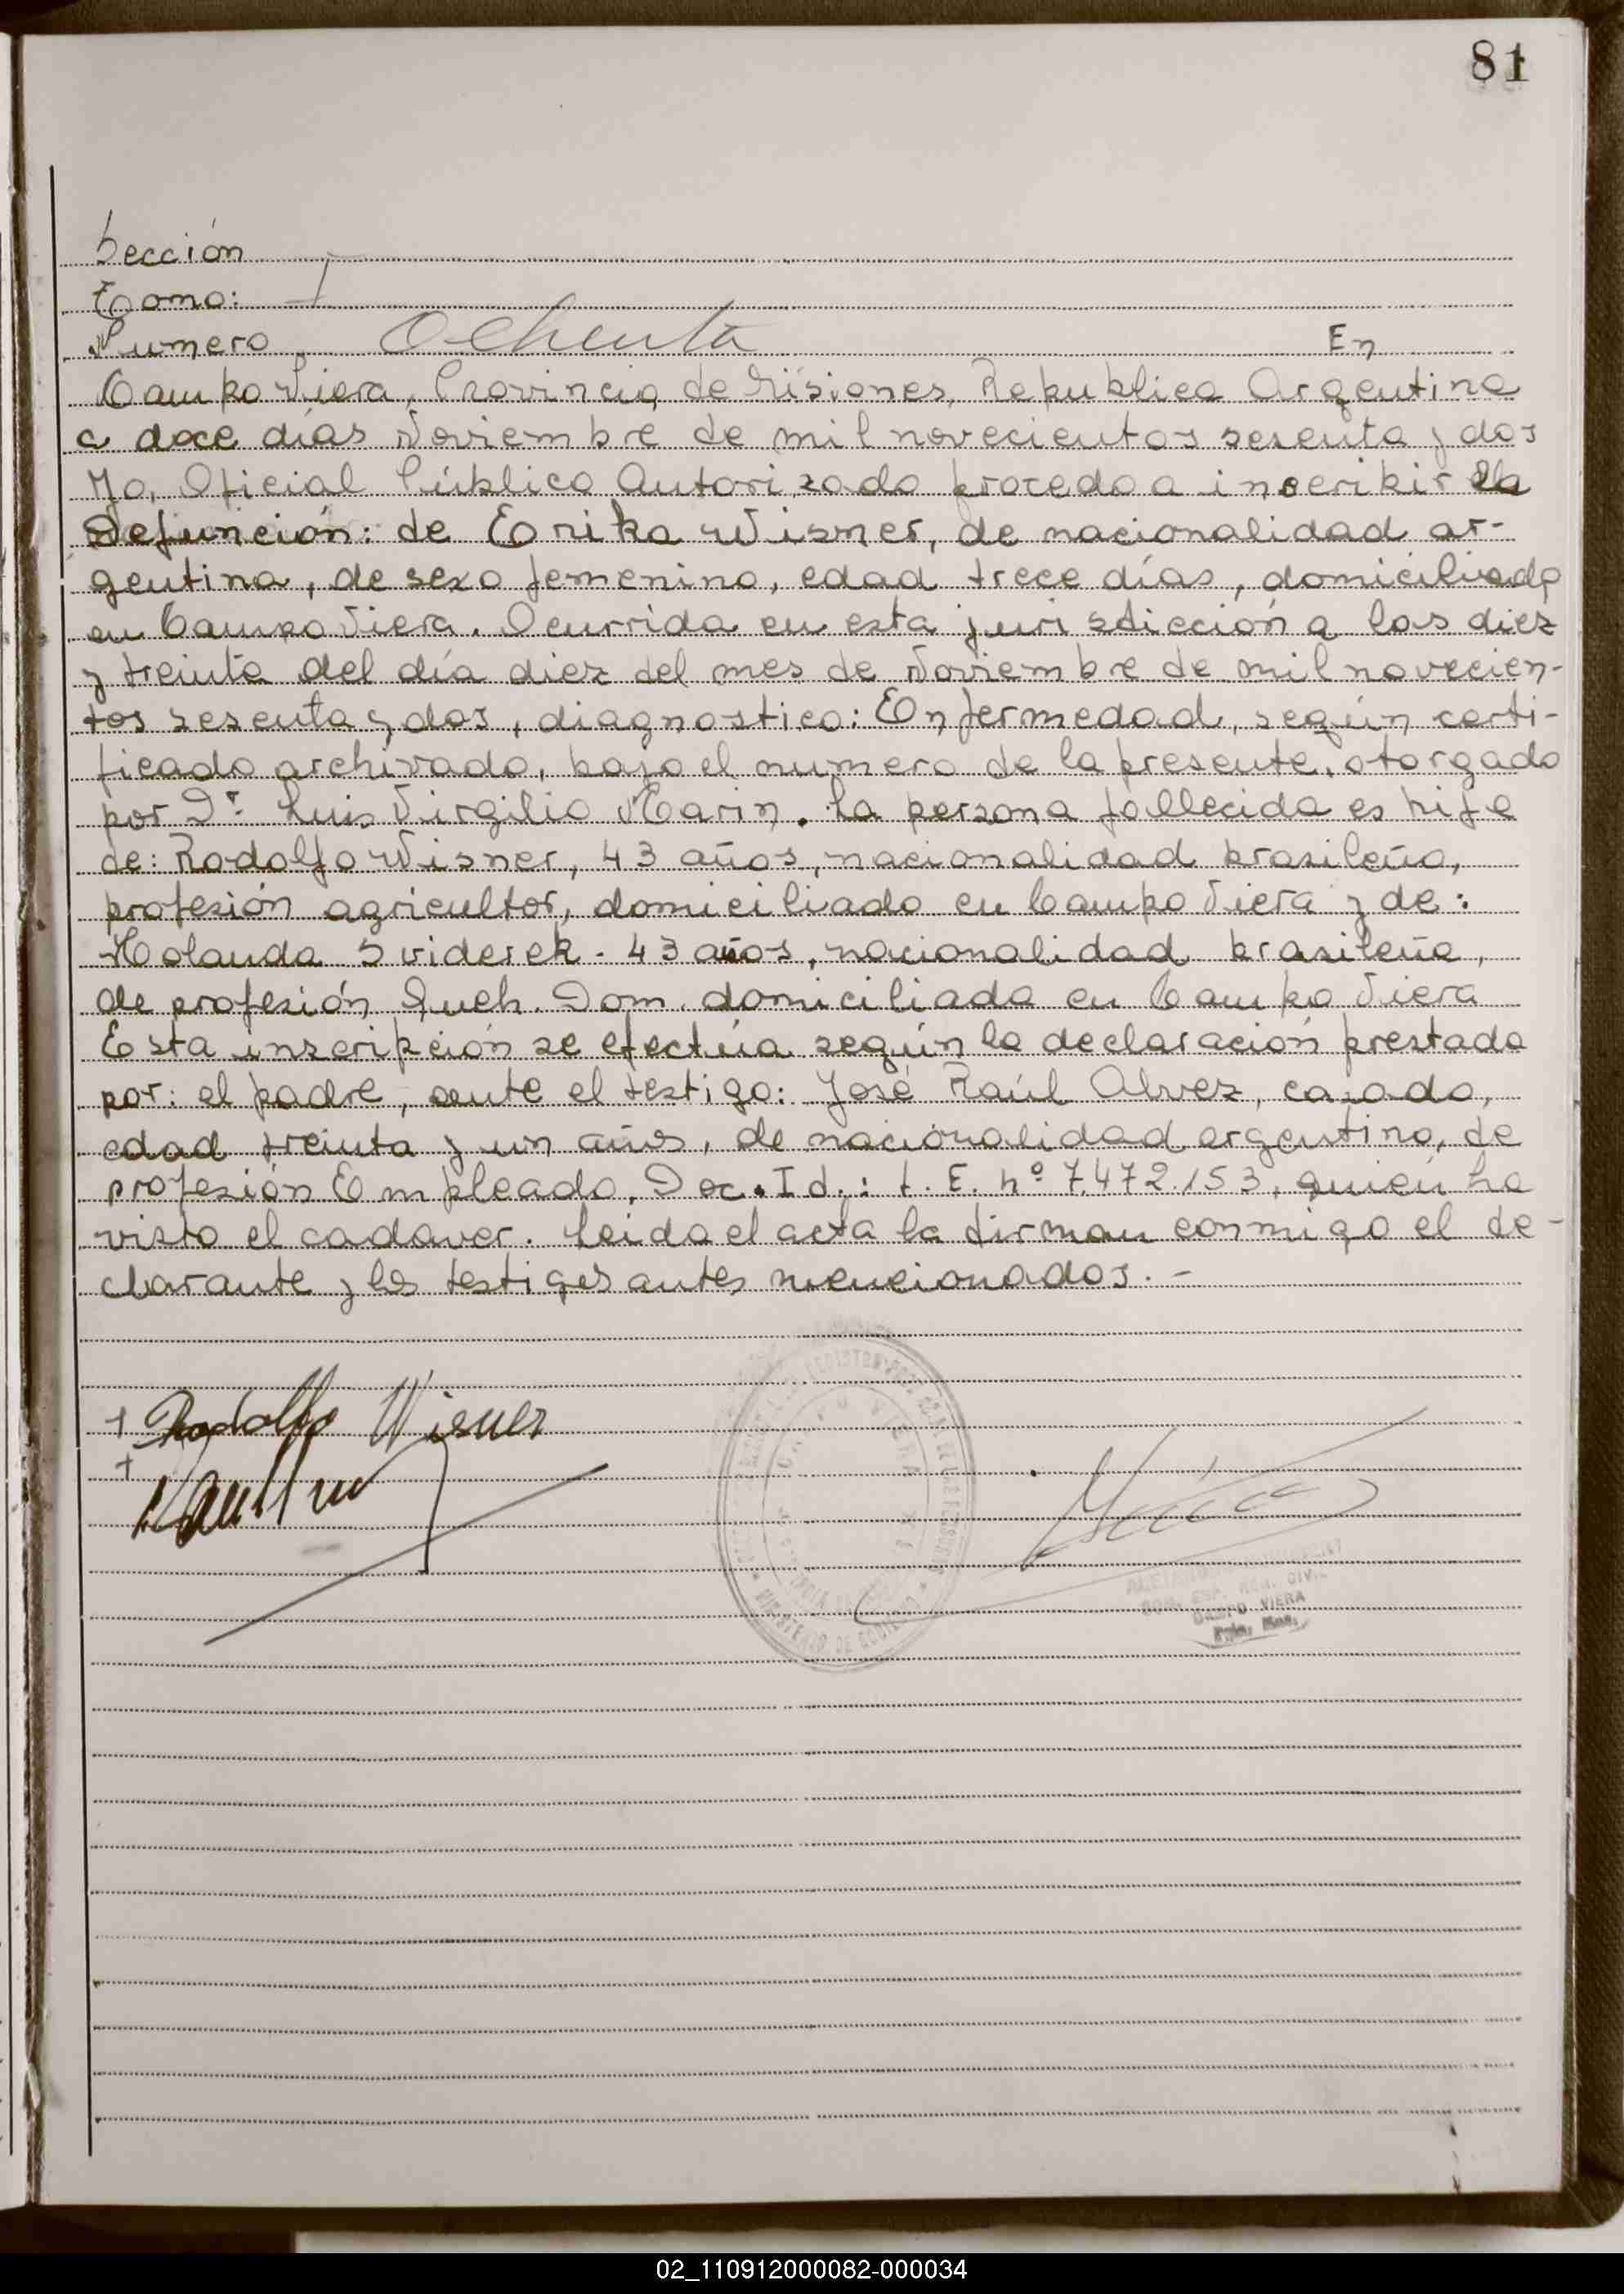 81
Sección
Tomo: I
Numero Ochenta En
Campo Viera, Provincia de Misiones, Republica Argentina
a doce días Noviembre de mil novecientos sesenta y dos
Yo, Oficial Público Autorizado procedo a inscribir la
Defunción: de Erika Wisner, de nacionalidad ar-
gentina, de sexo femenino, edad trece días, domiciliado
en Campo Viera. Ocurrida en esta jurisdicción a las diez
y treinta del día diez del mes de Noviembre de mil novecien-
tos sesenta y dos, diagnostico: Enfermedad, según certi-
ficado archivado, bajo el numero de la presente, otorgado
por Dr. Luis Virgilio Marin. La persona fallecida es hija
de: Rodolfo Wisner, 43 años, nacionalidad brasileña,
profesión agricultor, domiciliado en Campo Viera y de:
Holanda Sviderek - 43 años, nacionalidad brasileña,
de profesión Queh. Dom. domiciliada en Campo Viera
Esta inscripción se efectúa según la declaración prestada
por: el padre, ante el testigo: José Raúl Alvez, casado,
edad treinta y un años, de nacionalidad argentino, de
profesión Empleado, Doc. Id.: L. E. nº 7.472.153, quien ha
visto el cadaver. Leida el acta la firman conmigo el de-
clarante y los testigos antes mencionados. -
Rodolfo Wisner
CAMPO VIERA
MINISTERIO DE GOBIERNO
CAMPO VIERA
02_110912000082-000034